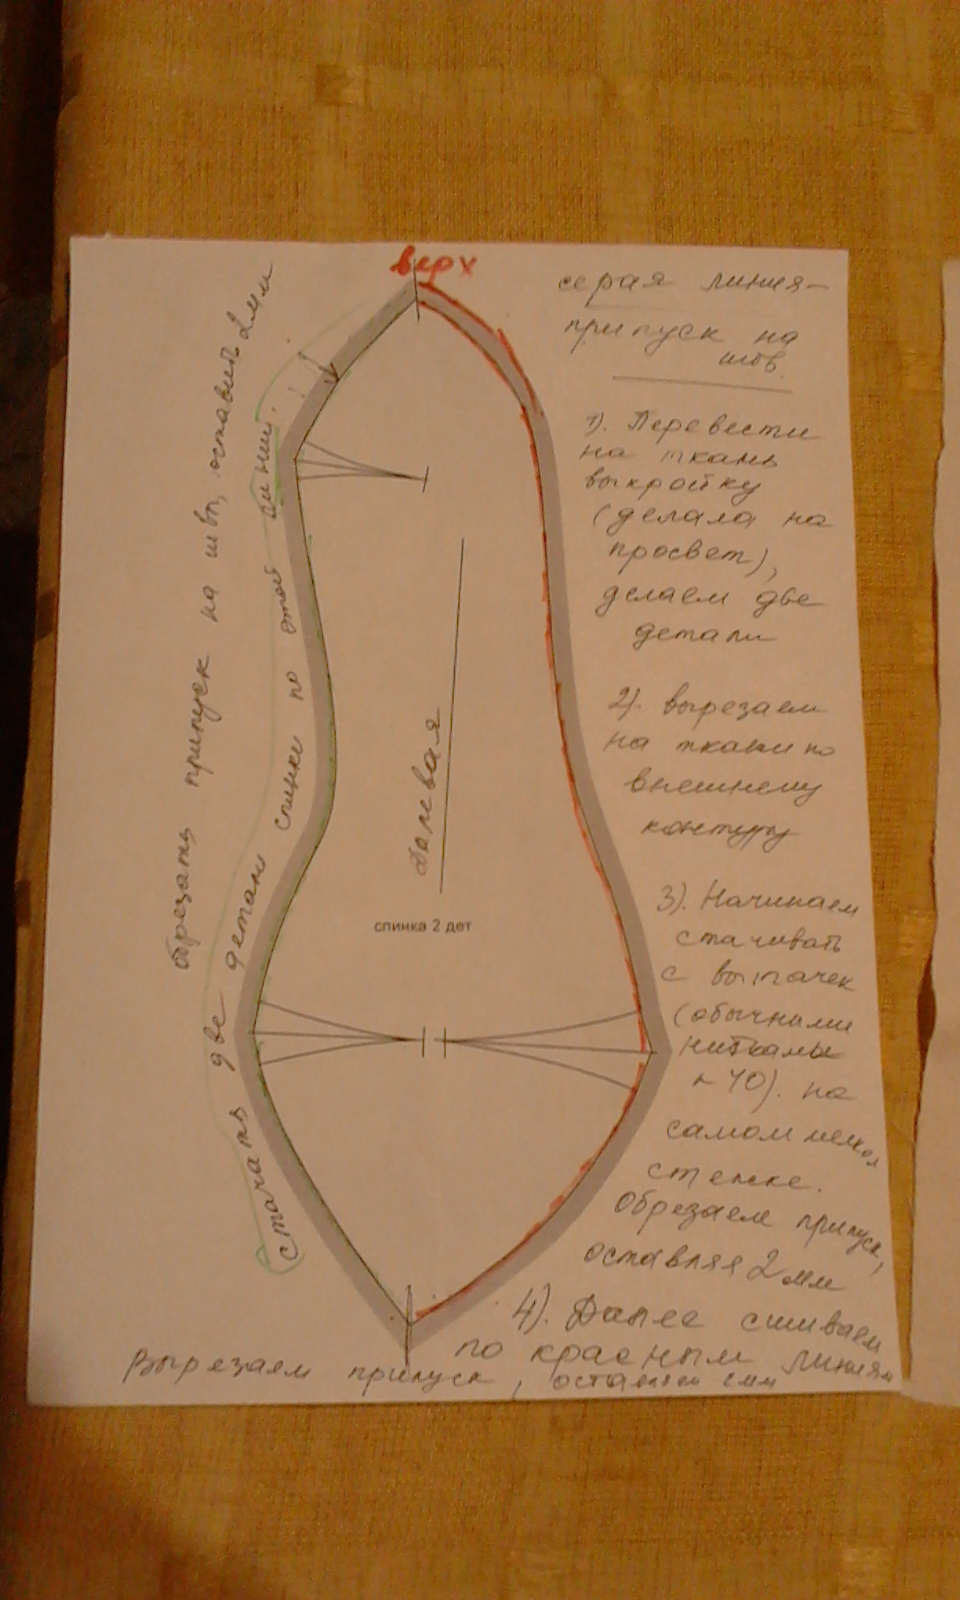 верх
серая линия-
припуск на
шов.
1). Перевести
на ткань
выкройку
(делала на
просвет),
делаем две
детали
2). вырезаем
на ткани по
внешнему
контуру
3). Начинаем
стачивать
с вытачек
(обычными
нитками
№40). на
самом мелком
стежке.
Обрезаем припуск,
оставляя 2мм
4). Далее сшиваем
по красным линиям
Вырезаем припуск, оставляем 2мм
обрезать припуск на швы, оставить 2мм
стачать две детали спинки по этой линии.
Долевая
спинка 2 дет